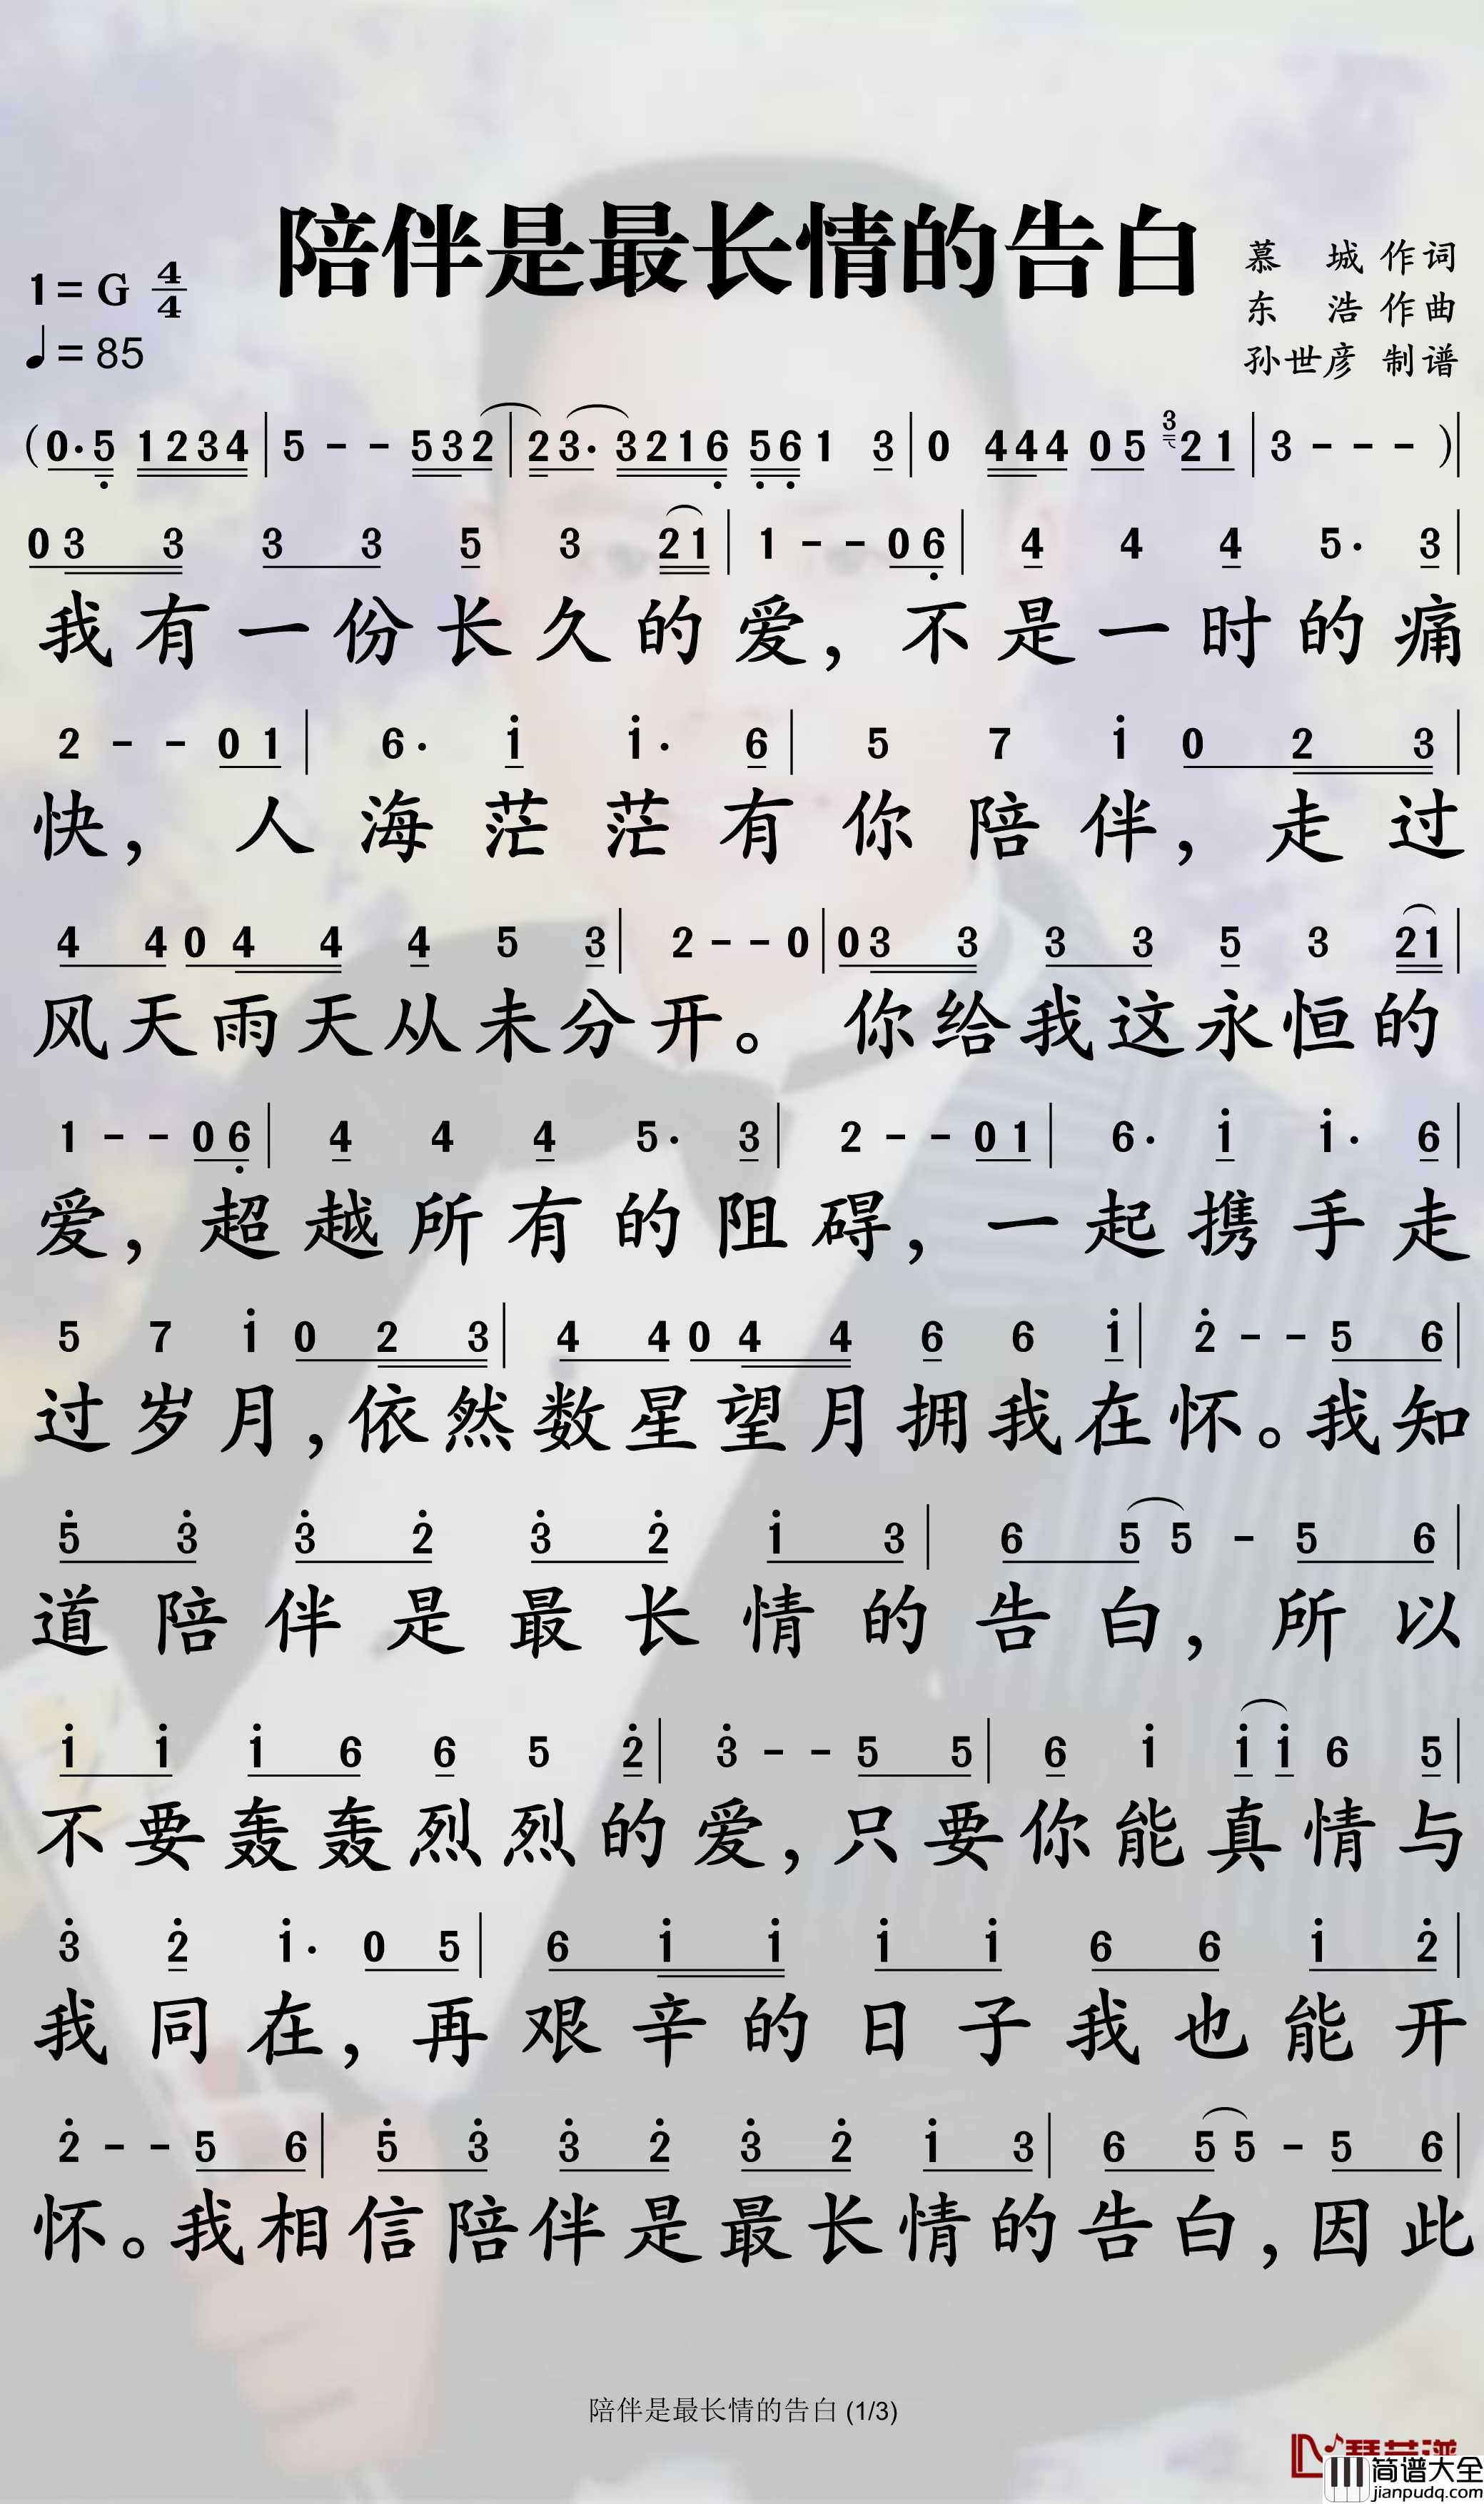 陪伴是最长情的告白
慕 城 作词
东 浩 作曲
孙世彦 制谱
1=G 4/4
♩=85
(0·5̣ 1234|5 - - 532|23· 3216̣ 5̣6̣1 3|0 444 05 ³21|3 - - - )|
03 3 3 3 5 3 21|1 - - 06̣|4 4 4 5· 3|
我有一份长久的爱,不是一时的痛
2 - - 01|6· 1̇ 1̇· 6|5 7 1̇ 0 2 3|
快,人海茫茫有你陪伴,走过
4 4 0 4 4 4 5 3|2 - - 0|03 3 3 3 5 3 21|
风天雨天从未分开。你给我这永恒的
1 - - 06̣|4 4 4 5· 3|2 - - 01|6· 1̇ 1̇· 6|
爱,超越所有的阻碍,一起携手走
5 7 1̇ 0 2 3|4 4 0 4 4 6 6 1̇|2̇ - - 5 6|
过岁月,依然数星望月拥我在怀。我知
5̇ 3̇ 3̇ 2̇ 3̇ 2̇ 1̇ 3|6 5 5 - 5 6|
道陪伴是最长情的告白,所以
1̇ 1̇ 1̇ 6 6 5 2̇|3̇ - - 5 5|6 1̇ 1̇ 1̇ 6 5|
不要轰轰烈烈的爱,只要你能真情与
3̇ 2̇ 1̇· 0 5|6 1̇ 1̇ 1̇ 1̇ 6 6 1̇ 2̇|
我同在,再艰辛的日子我也能开
2̇ - - 5 6|5̇ 3̇ 3̇ 2̇ 3̇ 2̇ 1̇ 3|6 5 5 - 5 6|
怀。我相信陪伴是最长情的告白,因此
陪伴是最长情的告白 (1/3)
简谱大全
jianpudq.com